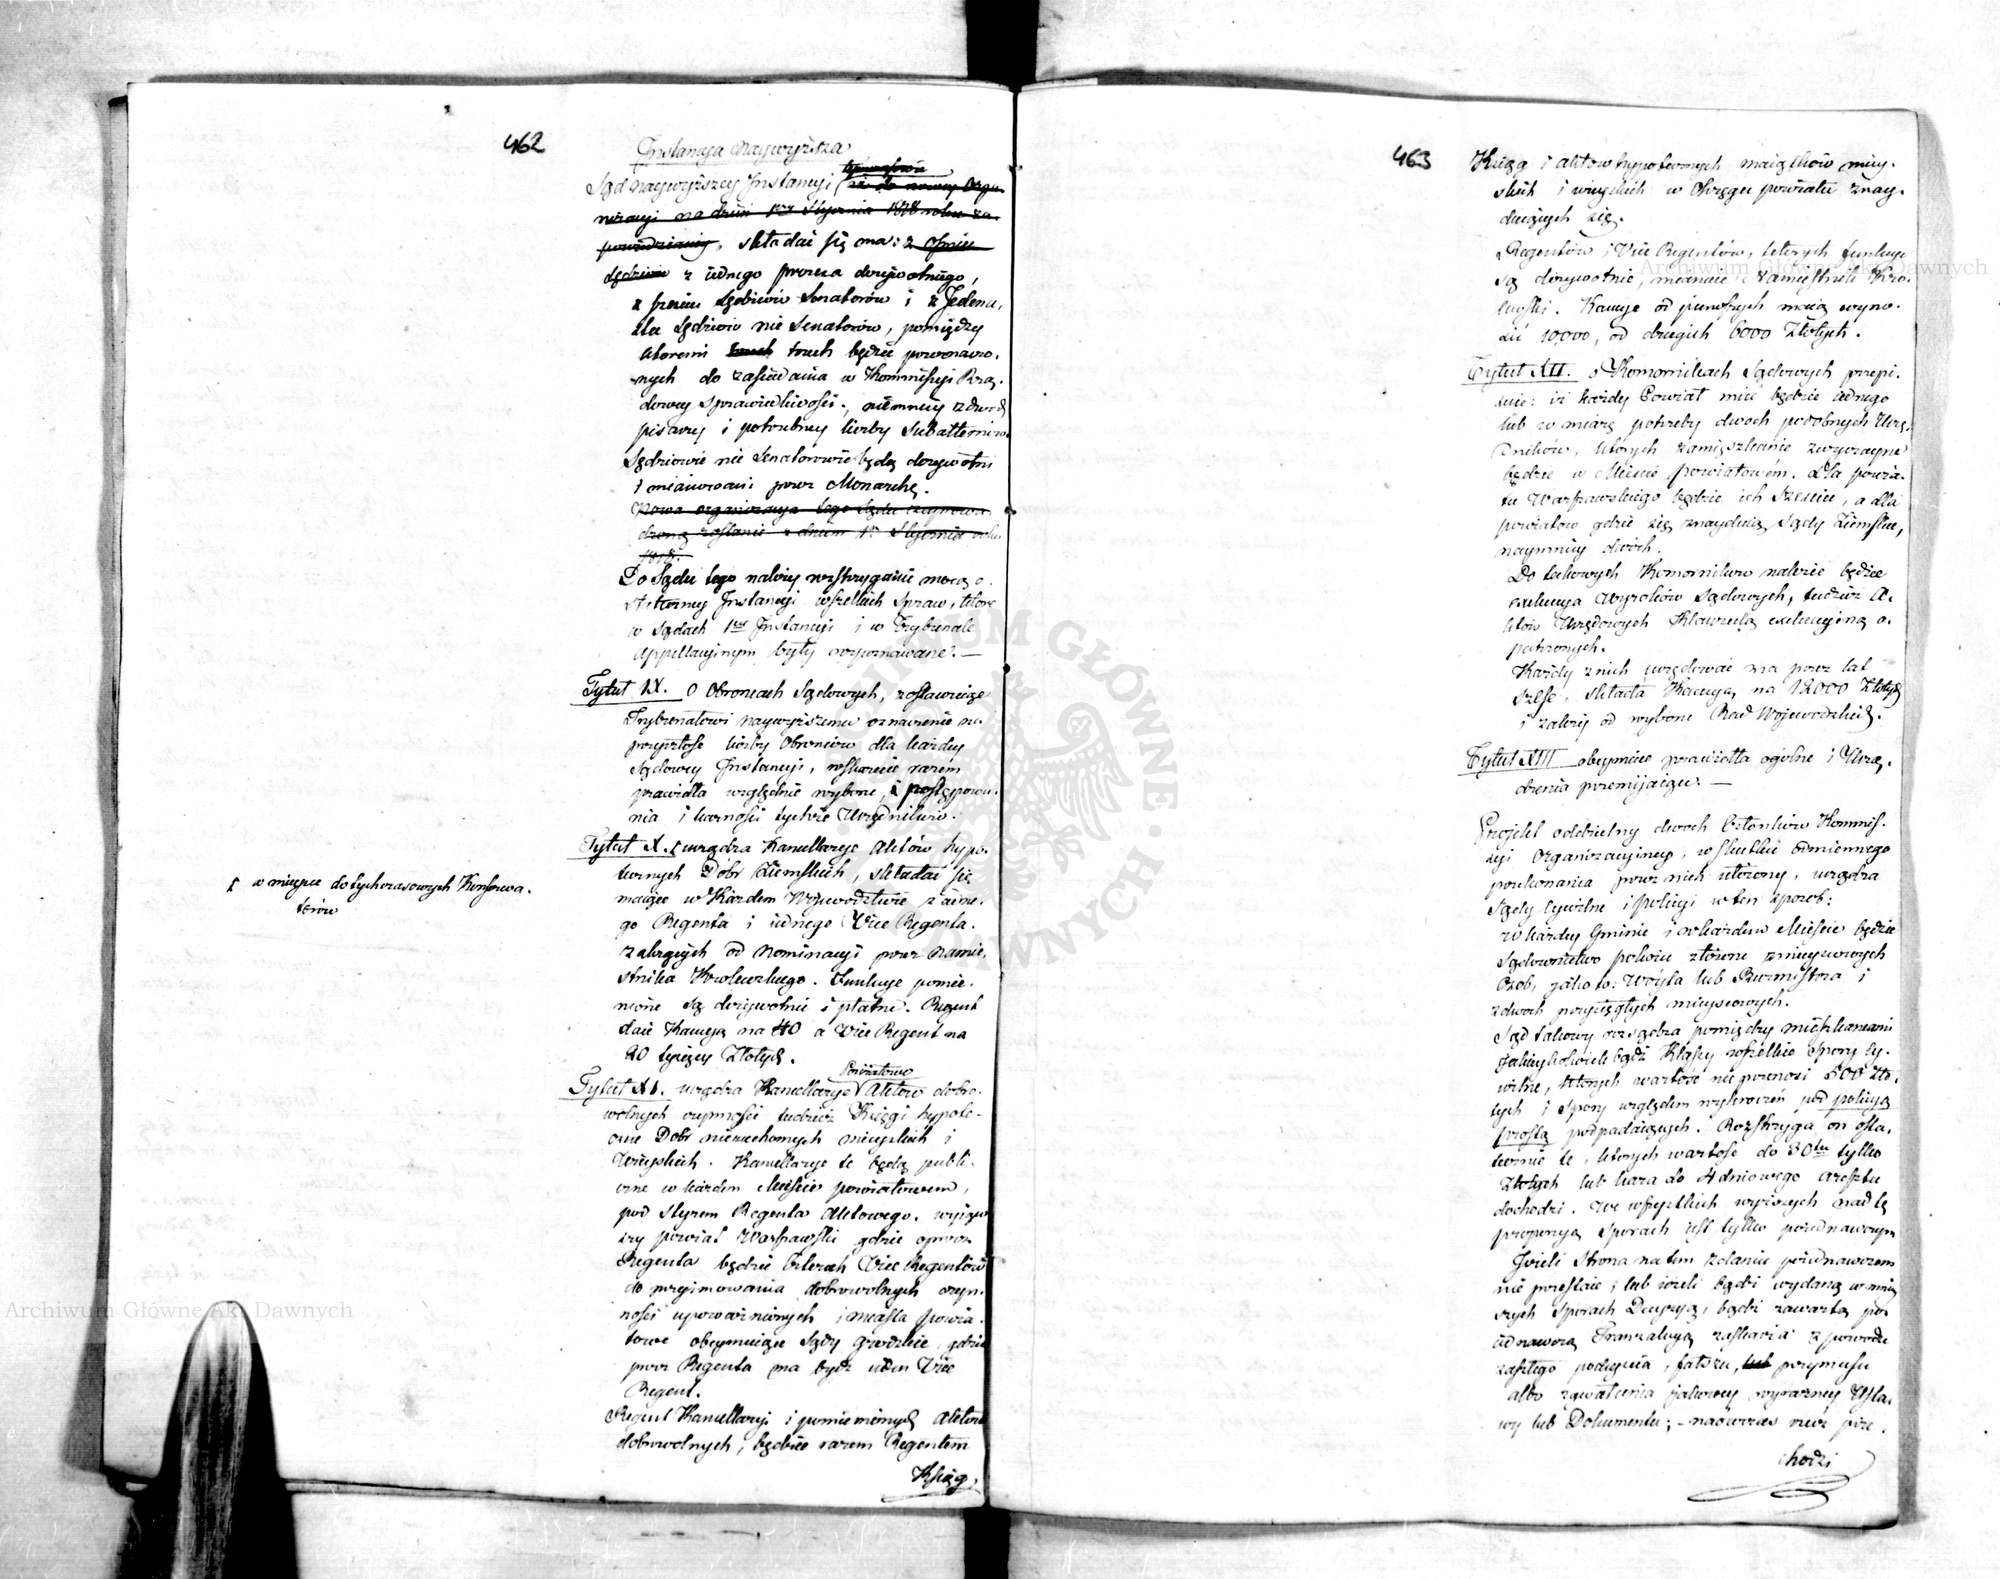 462
Instancya Naywyższa
Sąd Naywyższey Instancyi (aż do nowey Orga-
nizacyi na dzień 1szy Stycznia 1818 roku za-
powiedzianey, składać się ma: z ośmiu
Sędziów z iednego prezesa dożywotniego,
z sześciu Sędziów Senatorów i z Jedena-
stu Sędziów nie Senatorów, pomiędzy
ktoremi trzech będzie powoływa-
nych do zasiadania w Kommissyi Rzą-
dowey Sprawiedliwości, niemniey z dwóch
pisarzy i potrzebney liczby Subalternów.
Sędziowie nie Senatorowie będą dożywotni
i mianowani przez Monarchę.
Nowa organizacya tego Sądu zaprowa-
dzoną zostanie z dniem 1m Stycznia roku
1818.
Do Sądu tego należy rozstrzyganie mocą o-
stateczney Instancyi wszelkich Spraw, które
w Sądach 1szey Instancyi i w Trybunale
Appellacyinym były rozpoznawane. —
Tytuł IX. O Obrońcach Sądowych, zostawuiąc
Trybunałowi naywyższemu oznaczenie na
przyszłość liczby Obrońców dla każdey
Sądowey Instancyi, wskazuie razem
prawidła względnie wyboru, i postępowa-
nia i karności tychże Urzędników.
Tytuł X. urządza Kancellarye Aktów hypo-
tecznych Dóbr Ziemskich, składać się
maiące w Każdem Woiewództwie z iedne-
go Regenta i iednego Vice Regenta.
zależących od Nominacyi przez Namie-
stnika Królewskiego. Funkcye pomie-
nione są dożywotnie i płatne. Regent
daie Kaucyą na 40 a Vice Regent na
20 tysięcy Złotych.
w mieysce dotychczasowych Konserwa-
torów
Powiatowe
Tytuł XI. urządza Kancellarye Aktów dobro-
wolnych czynności tudzież Księgi hypote-
czne Dóbr nieruchomych mieyskich i
Wieyskich. Kancellarye te będą publi-
czne w każdem Mieście powiatowem,
pod sterem Regenta Aktowego. wyiąw-
szy powiat Warszawski gdzie oprócz
Regenta będzie czterech Vice Regentów
do przyimowania dobrowolnych czyn-
ności upoważnionych i miasta powia-
towe obeymuiące Sądy Grodzkie, gdzie
prócz Regenta ma bydź ieden Vice
Regent.
Regent Kancellaryi i pomienionych Aktów
dobrowolnych, będzie razem Regentem
Ksiąg
463
Ksiąg i aktów hypotecznych maiątków miey-
skich i wieyskich w Okręgu powiatu znay-
duiących się.
Regentów i Vice Regentów, których funkcye
są dożywotnie, mianuie Namiestnik Kró-
lewski. Kaucye od pierwszych maią wyno-
sić 10,000, od drugich 6000 Złotych.
Tytuł XII. o Komornikach Sądowych przepi-
suie: iż każdy Powiat mieć będzie iednego
lub w miarę potrzeby dwóch podobnych Urzę-
dników, których zamieszkanie zwyczayne
będzie w Mieście powiatowem. Dla powia-
tu Warszawskiego będzie ich Sześciu, a dla
powiatów gdzie się znayduią Sądy Ziemskie,
naymniey dwóch.
Do takowych Komorników należeć będzie
exekucya Wyroków Sądowych, tudzież A-
któw Urzędowych Klauzulą exekucyiną o-
patrzonych.
Każdy z nich urzędować ma przez lat
sześć, składa Kaucyą na 12000 Złotych
i zależy od wyboru Rad Woiewódzkich.
Tytuł XIII obeymuie prawidła ogólne i Urzą-
dzenia przemijaiące. —
Projekt oddzielny dwóch Członków Kommis-
syi Organizacyiney, w skutku odmiennego
przekonania przez nich ułożony, urządza
Sądy Cywilne i Policyi w ten sposób:
w każdey Gminie i w każdem Mieście będzie
Sądownictwo pokoiu złożone z mieyscowych
Osób, jako to: Wóyta lub Burmistrza i
z dwóch przysięgłych mieyscowych.
Sąd takowy rozsądza pomiędzy mieszkańcami
jakieykolwiek bądź Klassy wszelkie Spory Cy-
wilne, których wartość nie przenosi 500 Zło-
tych i Spory względem wykroczeń pod policyą
prostą podpadaiących. Rozstrzyga on osta-
tecznie te, których wartość do 30tu tylko
Złotych lub kara do 4dniowego aresztu
dochodzi. We wszystkich wyższych nad tę
proporcyą Sporach iest tylko poiednawczym
Jeżeli Strona na tem zdaniu poiednawczem
nie przestaie, lub ieżeli bądź wydaną w mniey-
szych Sporach Decyzyą, bądź zawartą po-
iednawczą Tranzakcyą zaskarża z powodu
zaszłego podeyścia, fałszu, lub przymusu
albo zgwałcenia jakowey wyraźney Usta-
wy lub Dokumentu; – naówczas rzecz prze-
chodzi
Archiwum Główne Akt Dawnych
Archiwum Główne Akt Dawnych
ARCHIWUM GŁÓWNE AKT DAWNYCH